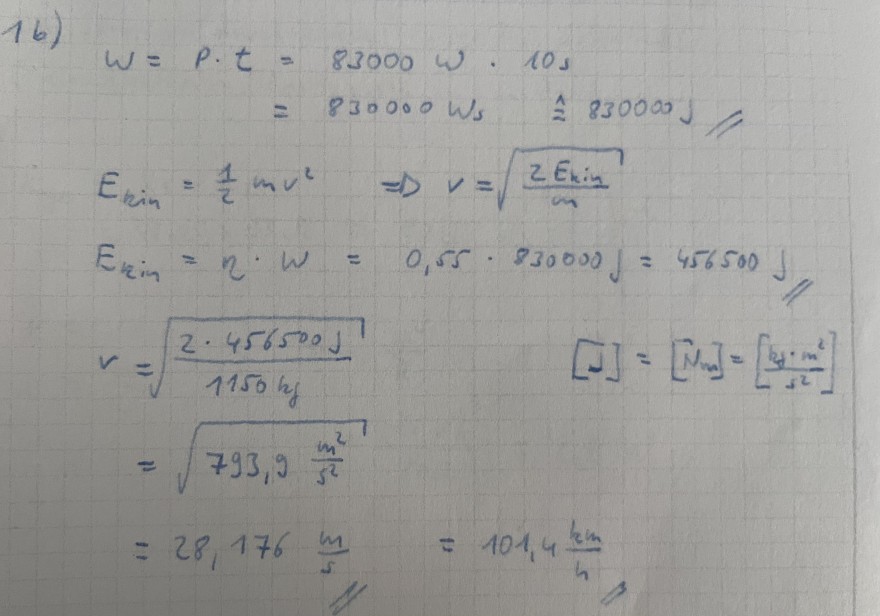 1b)
W = P · t = 83000 W · 10s
= 830000 Ws ≙ 830000 J
E_kin = 1/2 mv² => v = √(2 E_kin / m)
E_kin = η · W = 0,55 · 830000 J = 456500 J
v = √(2 · 456500 J / 1150 kg) [J] = [Nm] = [kg · m² / s²]
= √(793,9 m²/s²)
= 28,176 m/s = 101,4 km/h